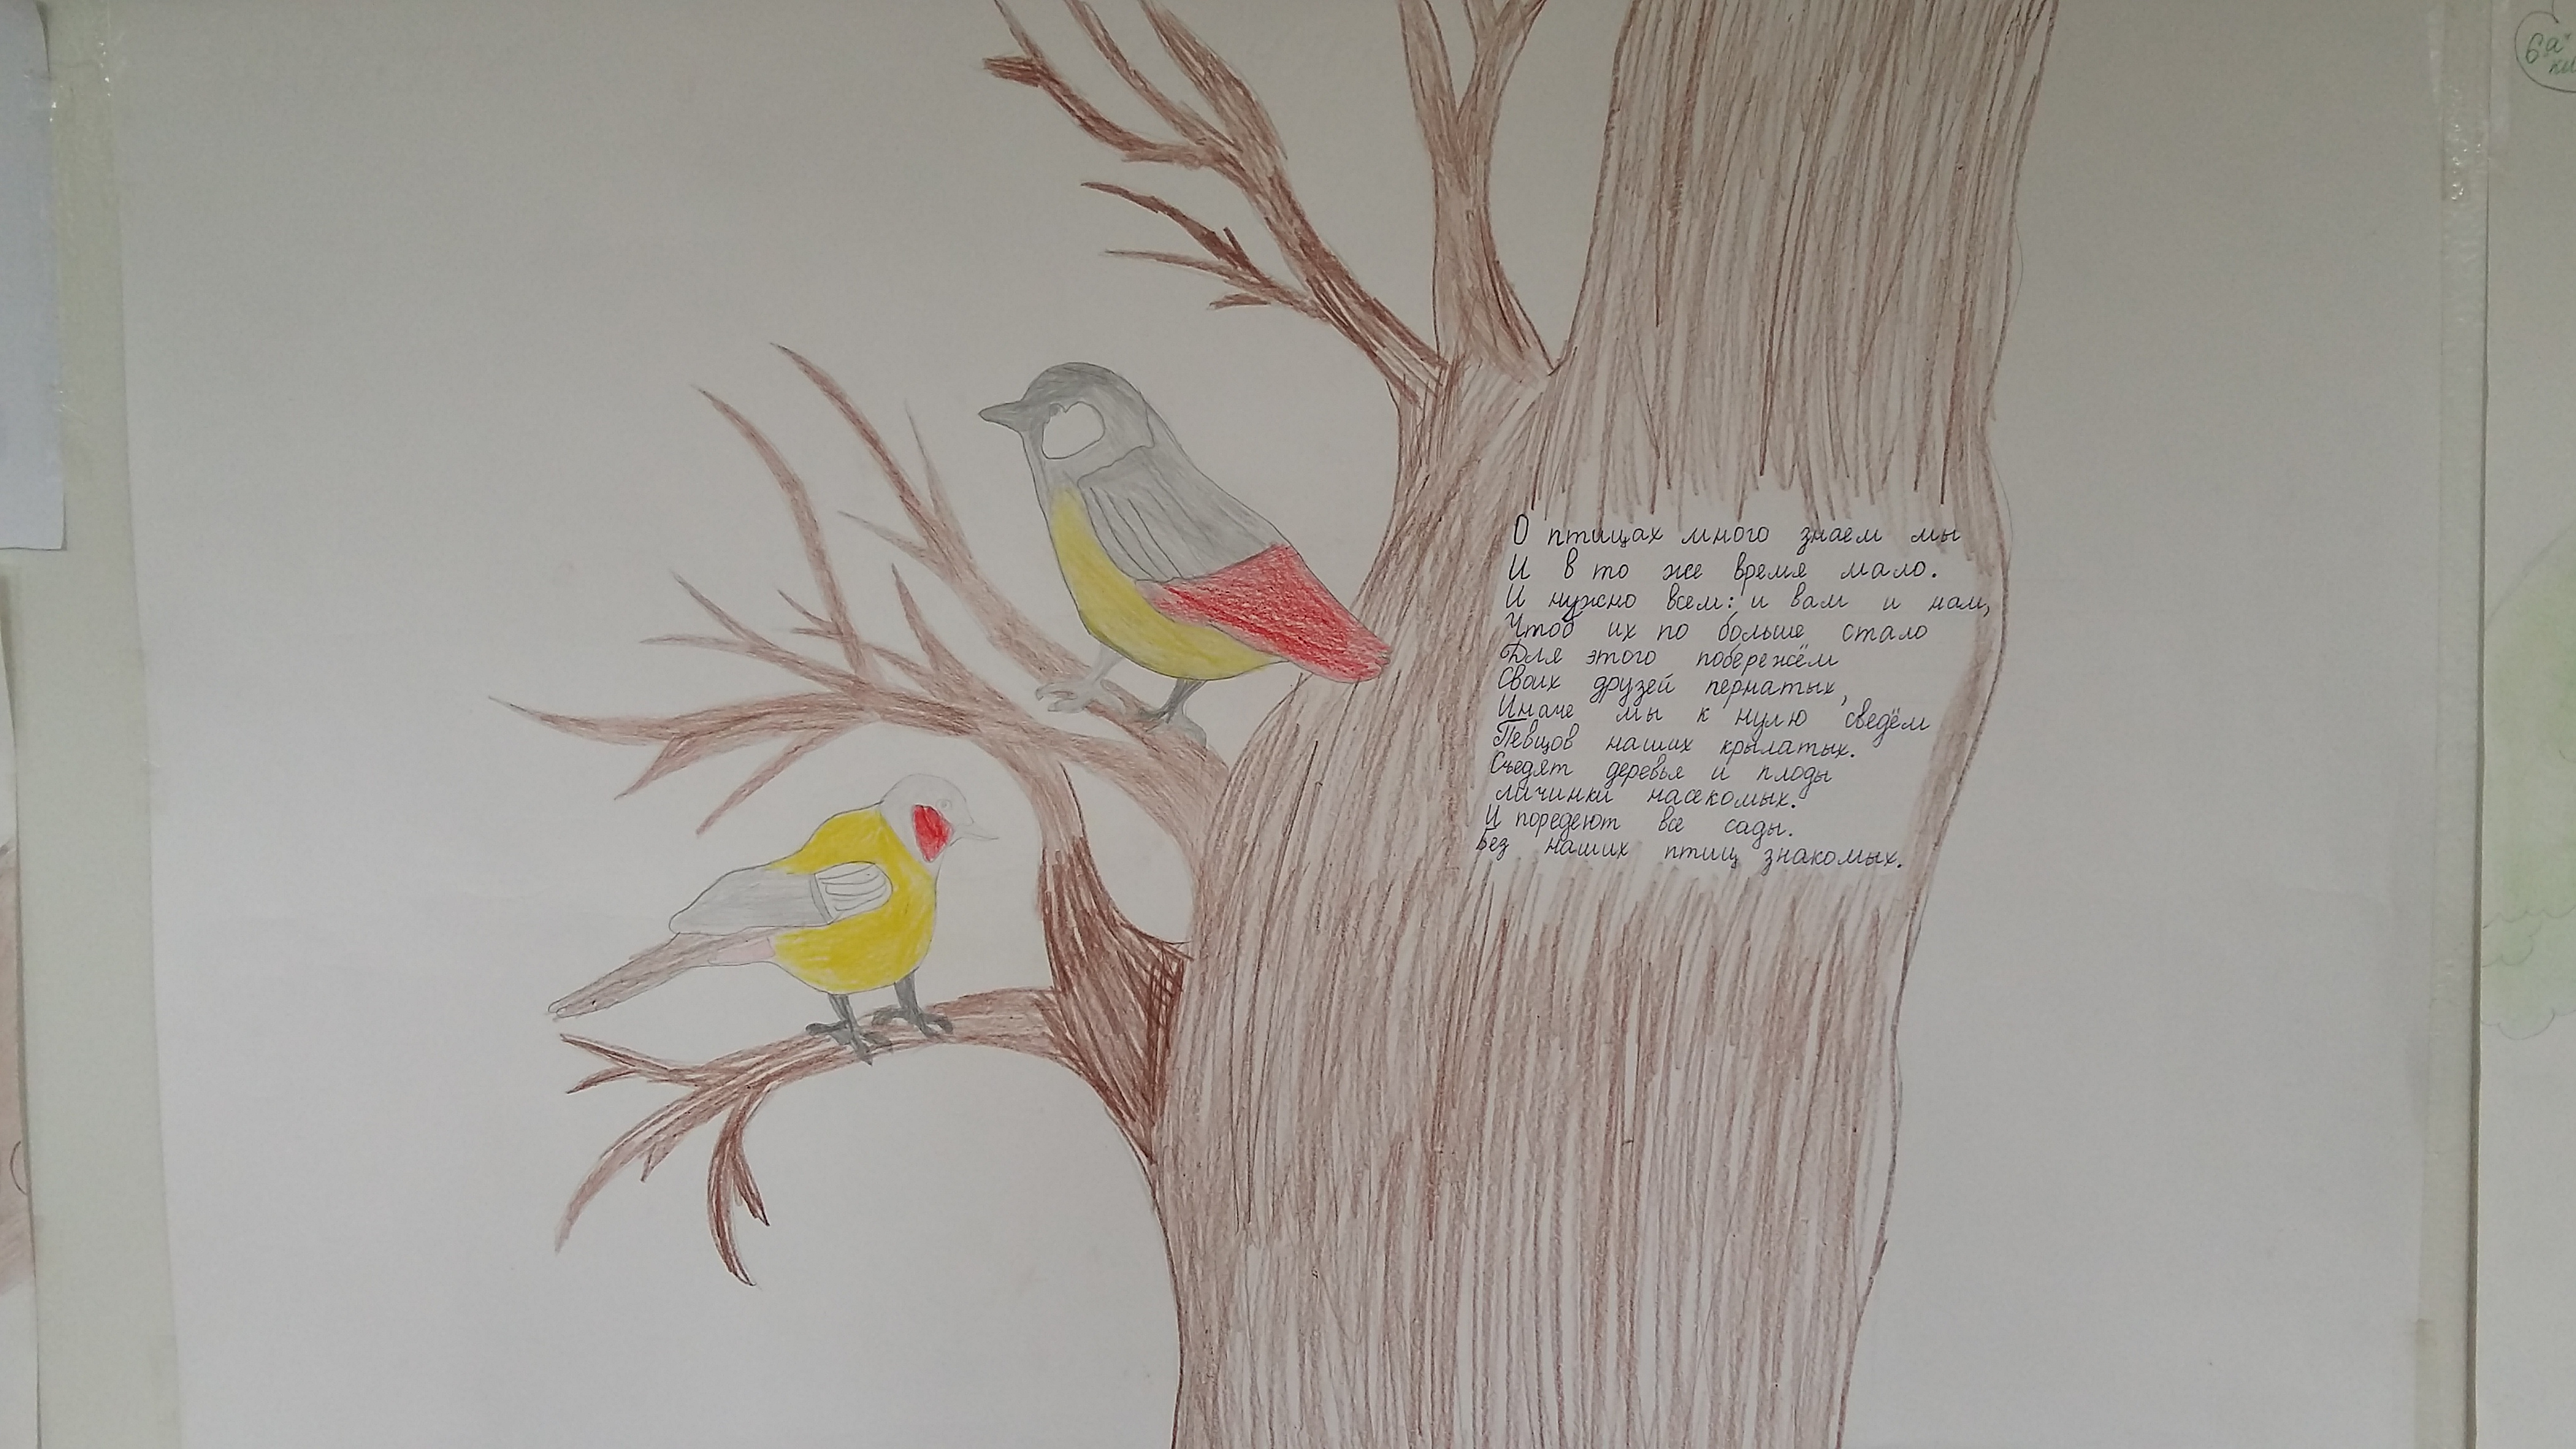 О птицах много знаем мы
И в то же время мало.
И нужно всем: и вам и нам,
Чтоб их по больше стало
Для этого побережём
Своих друзей пернатых,
Иначе мы к нулю сведём
Певцов наших крылатых.
Съедят деревья и плоды
личинки насекомых.
И поредеют все сады.
Без наших птиц знакомых.
6"а"